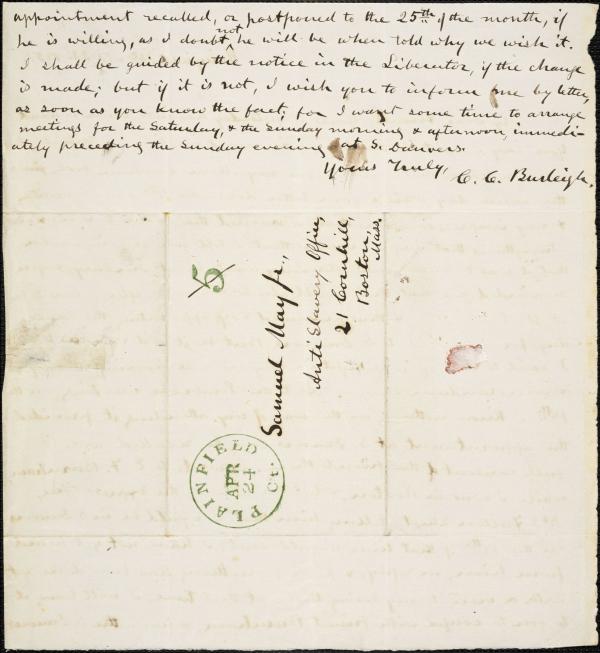 appointment recalled, or postponed to the 25th of the month, if
he is willing, as I doubt not he will be when told why we wish it.
I shall be guided by the notice in the Liberator, if the change
is made; but if it is not, I wish you to inform me by letter,
as soon as you know the fact; for I want some time to arrange
meetings for the Saturday, & the Sunday morning & afternoon, immedi-
ately preceding the Sunday evening at S. Danvers.
Yours Truly, C. C. Burleigh.
5
Samuel May Jr.,
Anti Slavery Office,
21 Cornhill,
Boston,
Mass.
PLAINFIELD Ct.
APR
24